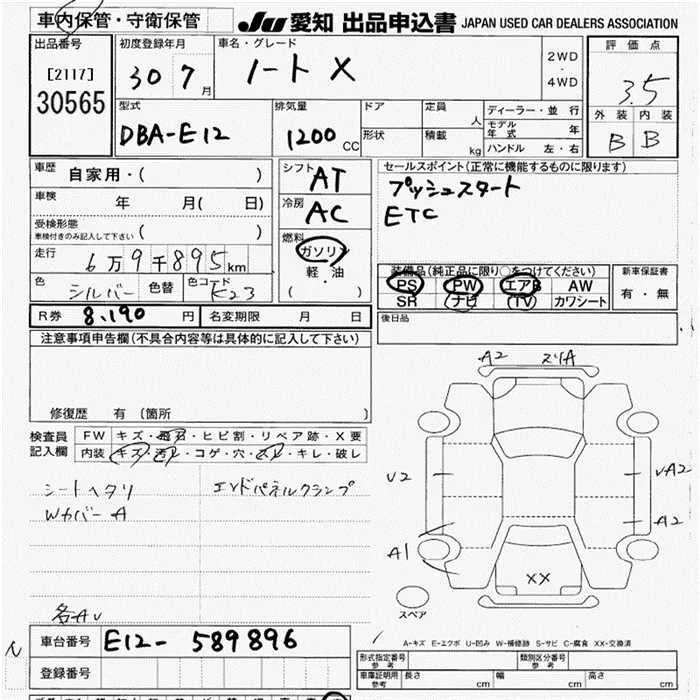 車内保管・守衛保管
JU 愛知 出品申込書 JAPAN USED CAR DEALERS ASSOCIATION
出品番号
[2117]
30565
初度登録年月
30 7 月
車名・グレード
ノート X
2WD
・
4WD
評価点
3.5
外装 内装
B B
型式
DBA-E12
排気量
1200 CC
ドア
形状
定員 人
積載 kg
ディーラー・並行
モデル年式 年
ハンドル 左・右
車歴
自家用・( )
車検
年 月( 日)
受検形態
車検付きのみ記入して下さい ( )
走行
6万9千895km
色
シルバー
色替
色コード
K23
シフト
AT
冷房
AC
燃料
ガソリン
軽・油
( )
セールスポイント(正常に機能するものに限ります)
プッシュスタート
ETC
装備品(純正品に限り○をつけてください)
PS PW エアB AW
SR ナビ (TV) カワシート
新車保証書
有・無
後日品
R券 8,190 円
名変期限 月 日
注意事項申告欄(不具合内容等は具体的に記入して下さい)
修復歴 有 (箇所 )
検査員
記入欄
FW キズ・飛石・ヒビ割・リペア跡・X要
内装 キズ・汚れ・コゲ・穴・スレ・キレ・破レ
シートヘタリ
Wカバー A
エンドパネルクランプ
各AU
A2 スリA
U2
UA2
A2
A1
XX
スペア
A-キズ E-エクボ U-凹み W-補修跡 S-サビ C-腐食 XX-交換済
車台番号 E12-589896
登録番号
形式指定番号
参考
類別区分番号
参考
車庫証明用
参考
長さ cm 幅 cm 高さ cm